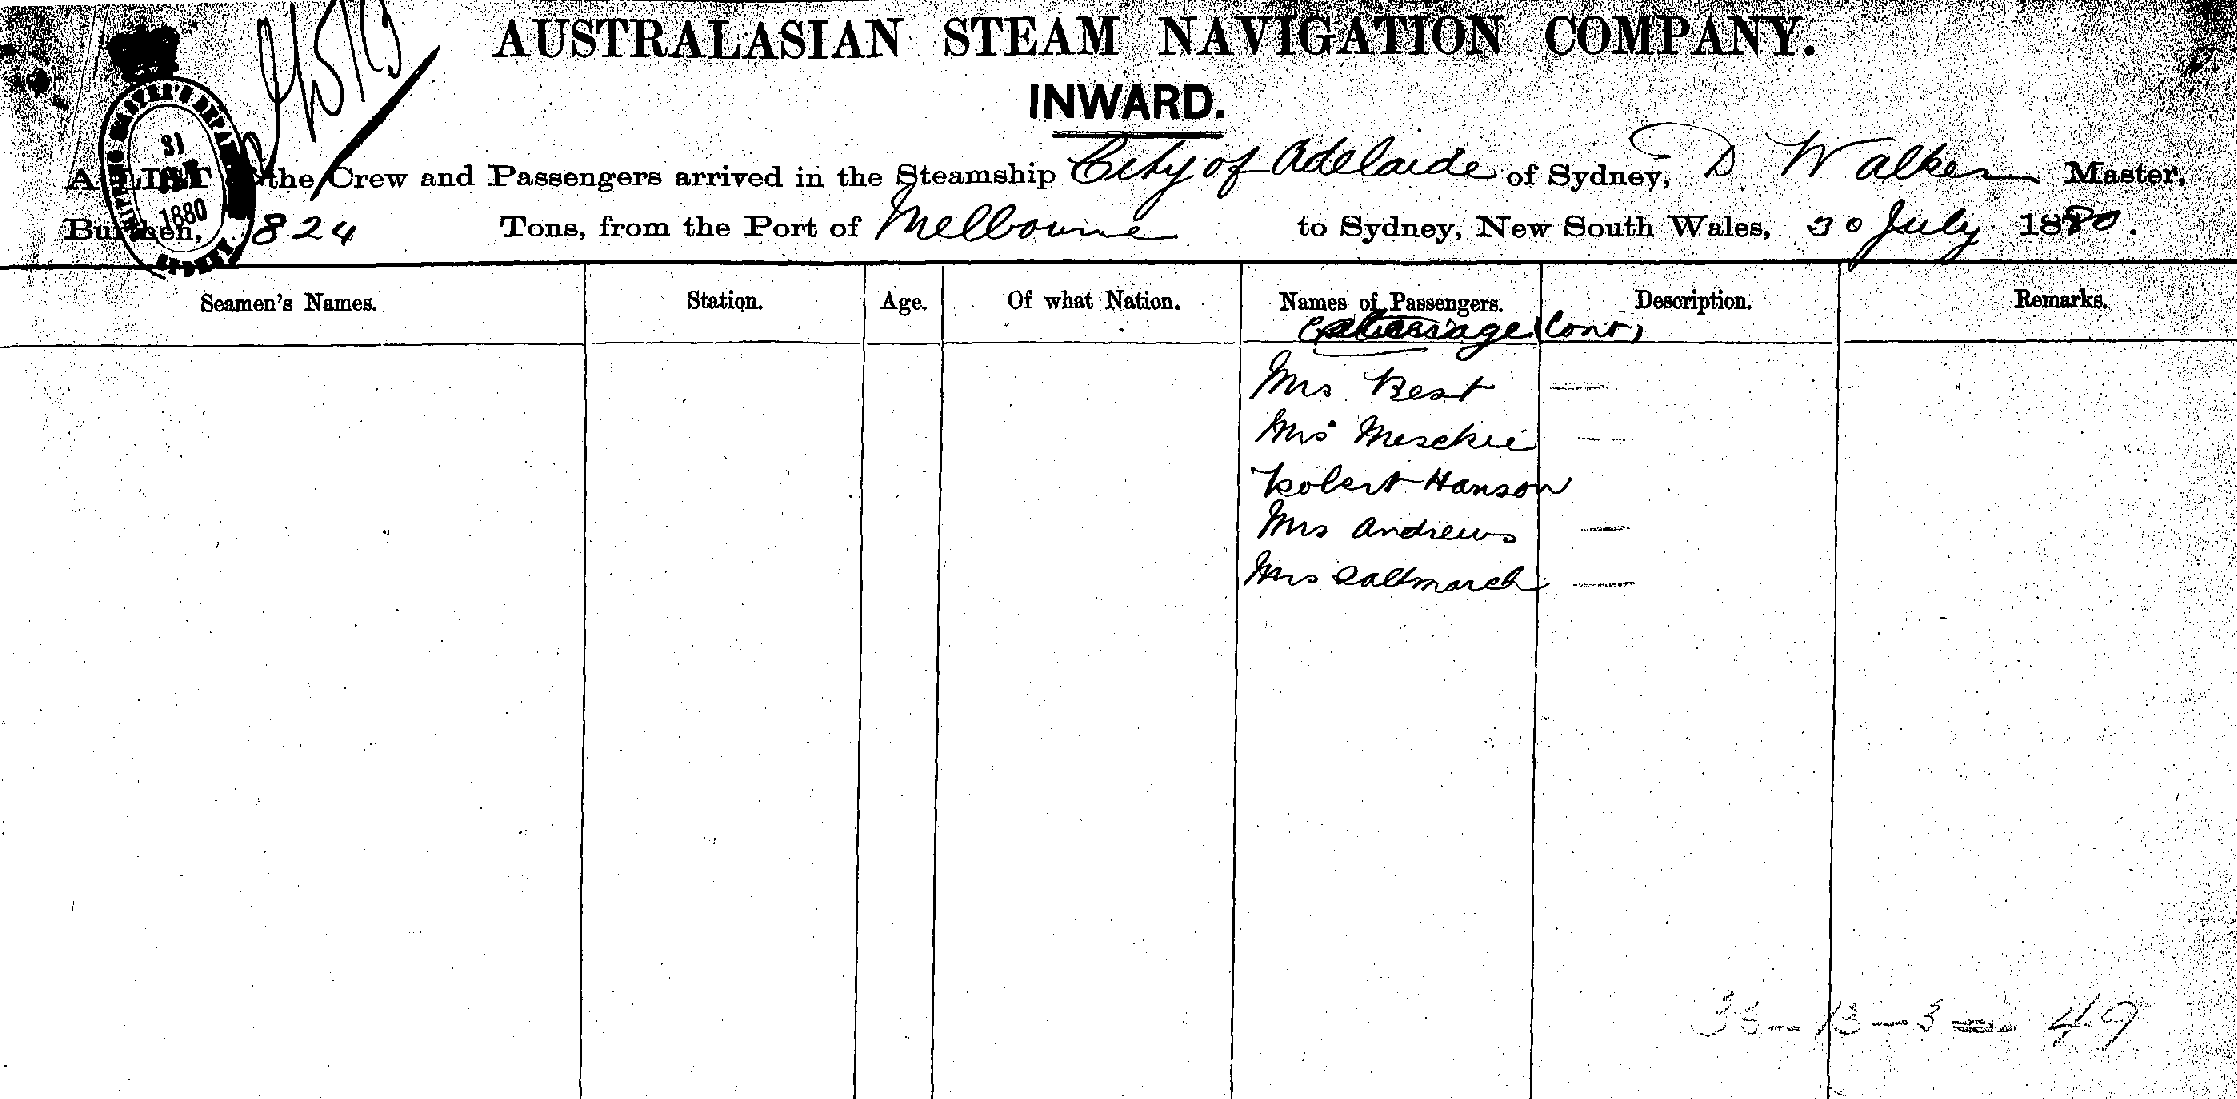 AUSTRALASIAN STEAM NAVIGATION COMPANY.
INWARD.
A LIST the Crew and Passengers arrived in the Steamship City of Adelaide of Sydney, D. Walker Master.
Burthen, 824 Tons, from the Port of Melbourne to Sydney, New South Wales, 30 July 1880.
31
1880
SYDNEY
Seamen's Names. Station. Age. Of what Nation. Names of Passengers. Description. Remarks.
Mrs Best —
Mrs Meschie —
Robert Hanson
Mrs Andrews —
Mrs Saltmarch —
33 - 13 - 3 = 49